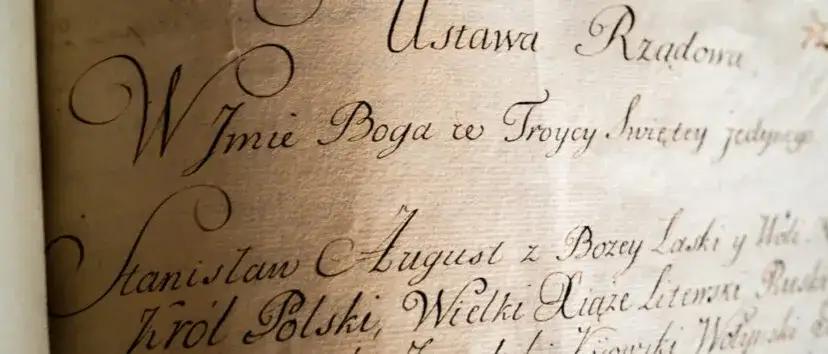 Ustawa Rządowa
W Jmie Boga w Troycy Swiętey jedynego
Stanisław August z Bożey Łaski y Woli
Król Polski, Wielki Xiąże Litewski Ruski
Kijowski Wołyński